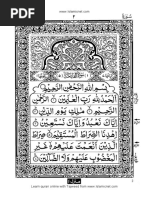 www.islamicnet.com
بِسْمِ اللهِ الرَّحْمٰنِ الرَّحِيْمِ
اَلْحَمْدُ لِلّٰهِ رَبِّ الْعٰلَمِيْنَ الرَّحْمٰنِ
الرَّحِيْمِ مٰلِكِ يَوْمِ الدِّيْنِ
اِيَّاكَ نَعْبُدُ وَاِيَّاكَ نَسْتَعِيْنُ
اِهْدِنَا الصِّرَاطَ الْمُسْتَقِيْمَ
صِرَاطَ الَّذِيْنَ اَنْعَمْتَ عَلَيْهِمْ غَيْرِ
الْمَغْضُوْبِ عَلَيْهِمْ وَلَا الضَّآلِّيْنَ
Learn quran online with Tajweed from www.islamicnet.com